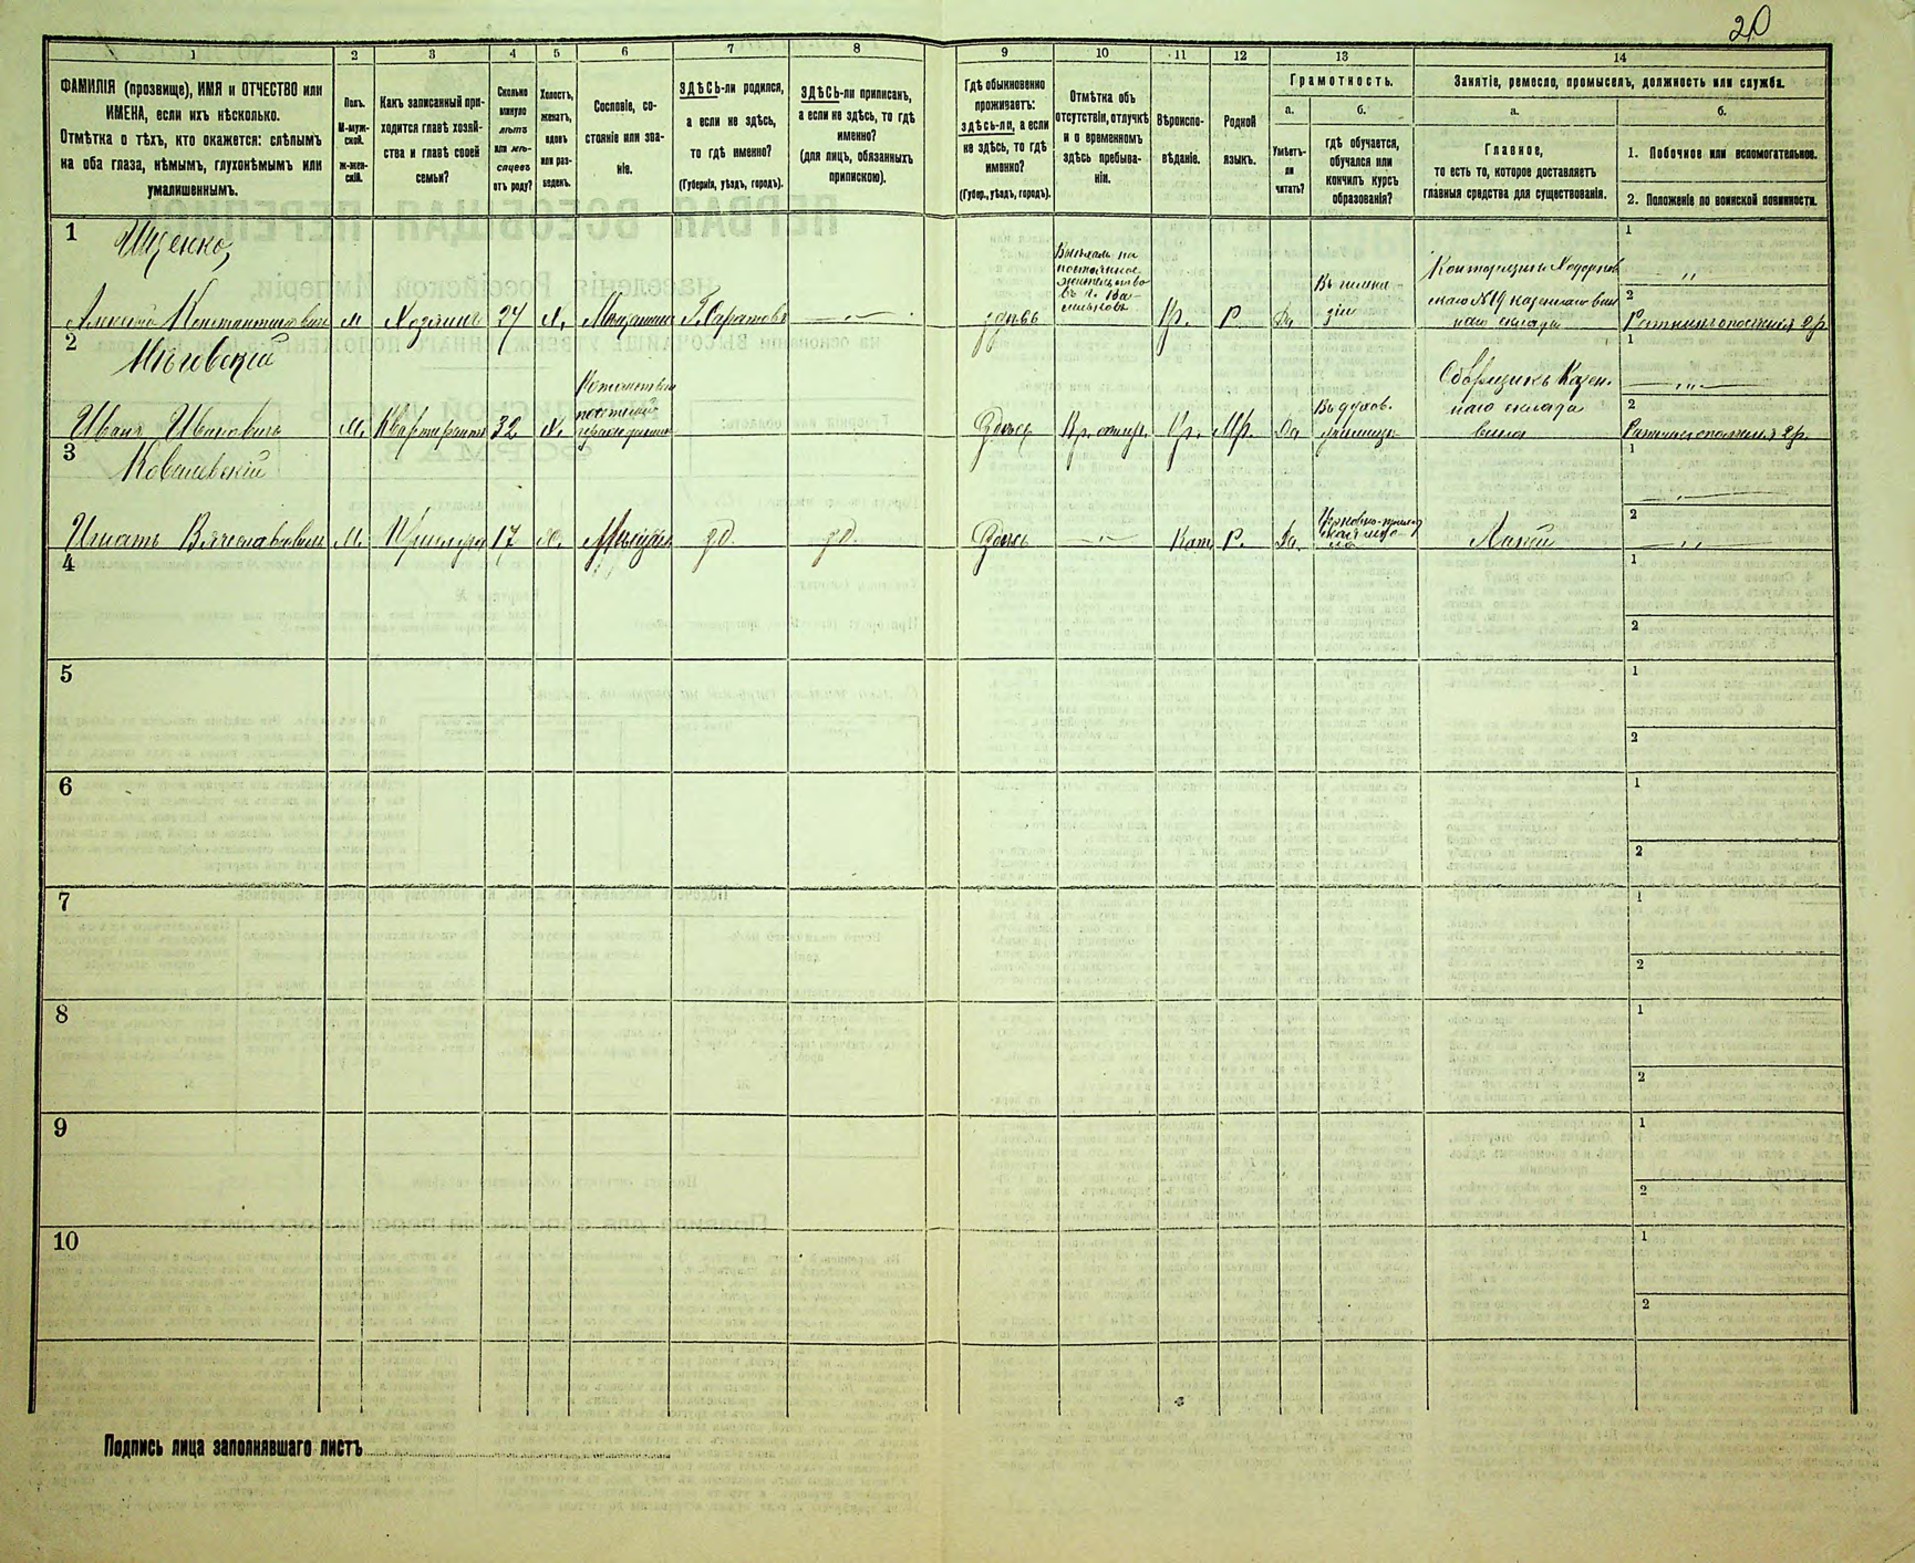 20
1
2
3
4
5
6
7
8
9
10
11
12
13
14
ФАМИЛІЯ (прозвище), ИМЯ и ОТЧЕСТВО или
ИМЕНА, если ихъ нѣсколько.
Отмѣтка о тѣхъ, кто окажется: слѣпымъ
на оба глаза, нѣмымъ, глухонѣмымъ или
умалишеннымъ.
Полъ.
М-муж-
ской.
ж-жен-
скій.
Какъ записанный при-
ходится главѣ хозяй-
ства и главѣ своей
семьи?
Сколько
минуло
лѣтъ
или мѣ-
сяцевъ
отъ роду?
Холостъ,
женатъ,
вдовъ
или раз-
веденъ.
Сословіе, со-
стояніе или зва-
ніе.
ЗДѢСЬ-ли родился,
а если не здѣсь,
то гдѣ именно?
(Губернія, уѣздъ, городъ).
ЗДѢСЬ-ли приписанъ,
а если не здѣсь, то гдѣ
именно?
(для лицъ, обязанныхъ
припискою).
Гдѣ обыкновенно
проживаетъ:
здѣсь-ли, а если
не здѣсь, то гдѣ
именно?
(Губер., уѣздъ, городъ).
Отмѣтка объ
отсутствіи, отлучкѣ
и о временномъ
здѣсь пребыва-
ніи.
Вѣроиспо-
вѣданіе.
Родной
языкъ.
Грамотность.
а.
Умѣетъ-
ли
читать?
б.
гдѣ обучается,
обучался или
кончилъ курсъ
образованія?
Занятіе, ремесло, промыселъ, должность или служба.
а.
Главное,
то есть то, которое доставляетъ
главныя средства для существованія.
б.
1. Побочное или вспомогательное.
2. Положеніе по воинской повинности.
1
Ищенко,
Алексѣй Константиновичъ
м
Хозяинъ
27
Х.
Мѣщанинъ
Г. Саратовъ
здѣсь
Выѣхалъ на
постоянное
жительство
въ г. Ва-
сильковъ
Пр.
Р.
Да
Въ гимна-
зіи
1
2
2
Иванъ Ивановичъ
М.
Квартирантъ
32
Х.
Здѣсь
Пр.
Мр.
Да
Въ духов.
училищѣ
Казен-
наго склада
вина
1
2
3
Ковалевскій
Игнатъ Вячеславовичъ
М.
17
Х.
Мѣщан.
зд.
зд.
Здѣсь
Кат.
Р.
Да.
Лакей
1
2
4
1
2
5
1
2
6
1
2
7
1
2
8
1
2
9
1
2
10
1
2
Подпись лица заполнявшаго листъ